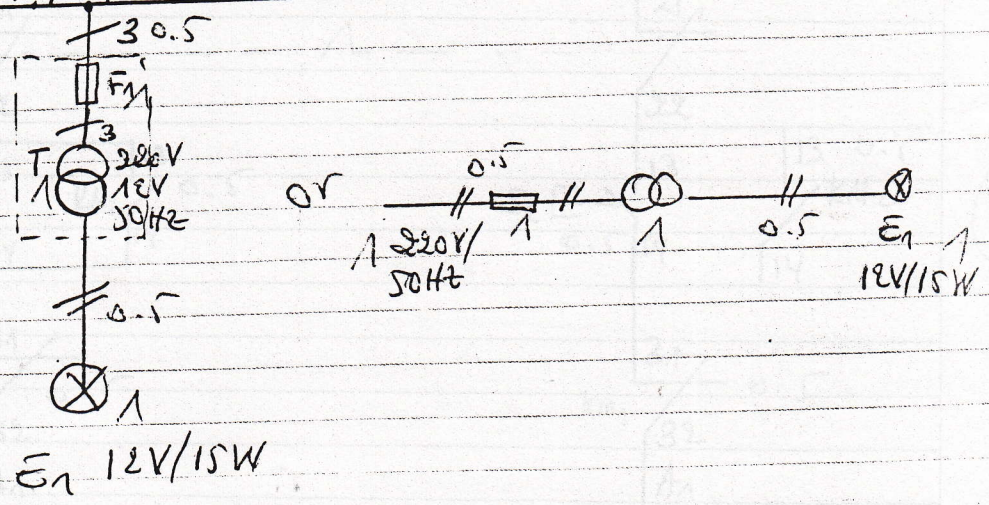 3 0.5
F1
3
T 220V
1 12V
50HZ
0.5
1
E1 12V/15W
or
0.5
1 220V/
50HZ
1
1
0.5
E1 1
12V/15W